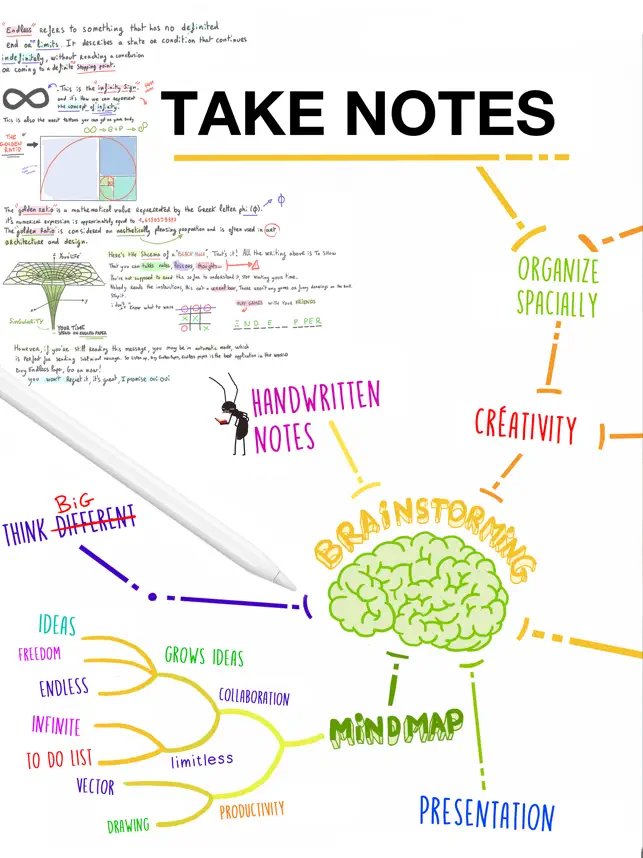 "Endless" refers to something that has no definited
end or limits. It describes a state or condition that continues
indefinitely, without reaching a conclusion
or coming to a definite stopping point.
This is the "infinity sign"
and it's how we can represent
the concept of infiety.
This is also the worst tattoo you can get on your body
THE
GOLDEN
RATIO
The "golden ratio" is a mathematical value represented by the Greek letter phi (ϕ).
ϕ
it's numerical expression is approximately equal to
The golden Ratio is considered an aesthetically pleasing proportion and is often used in art
architecture and design.
SINGULARITY
YOUR TIME
SPEND ON ENDLESS PAPER
Here's the Shcema of a "BLACK HOLE". That's it! All the writing above is to show
that you can take notes, lessons, thoughts...
You're not supposed to read this so far to understand it, stop wasting your time.
Nobody reads the instructions, this isn't a cereal box, there aren't any games or funny drawings on the back
PLAY GAMES WITH YOUR FRIENDS
E N D E _ _ P PER
However, if you're still reading this message, you may be in automatic mode, which
is perfect for sending subliminal messages. So listen up, buy Endless Paper, endless paper is the best application in the world
Buy Endless Paper, Go on now!
you won't Regret it, it's great, I promise oui oui
TAKE NOTES
ORGANIZE
SPACIALLY
CRÉATIVITY
HANDWRITTEN
NOTES
BIG
THINK DIFFERENT
BRAINSTORMING
IDEAS
FREEDOM
ENDLESS
GROWS IDEAS
COLLABORATION
INFINITE
TO DO LIST
limitless
VECTOR
DRAWING
PRODUCTIVITY
MINDMAP
PRESENTATION